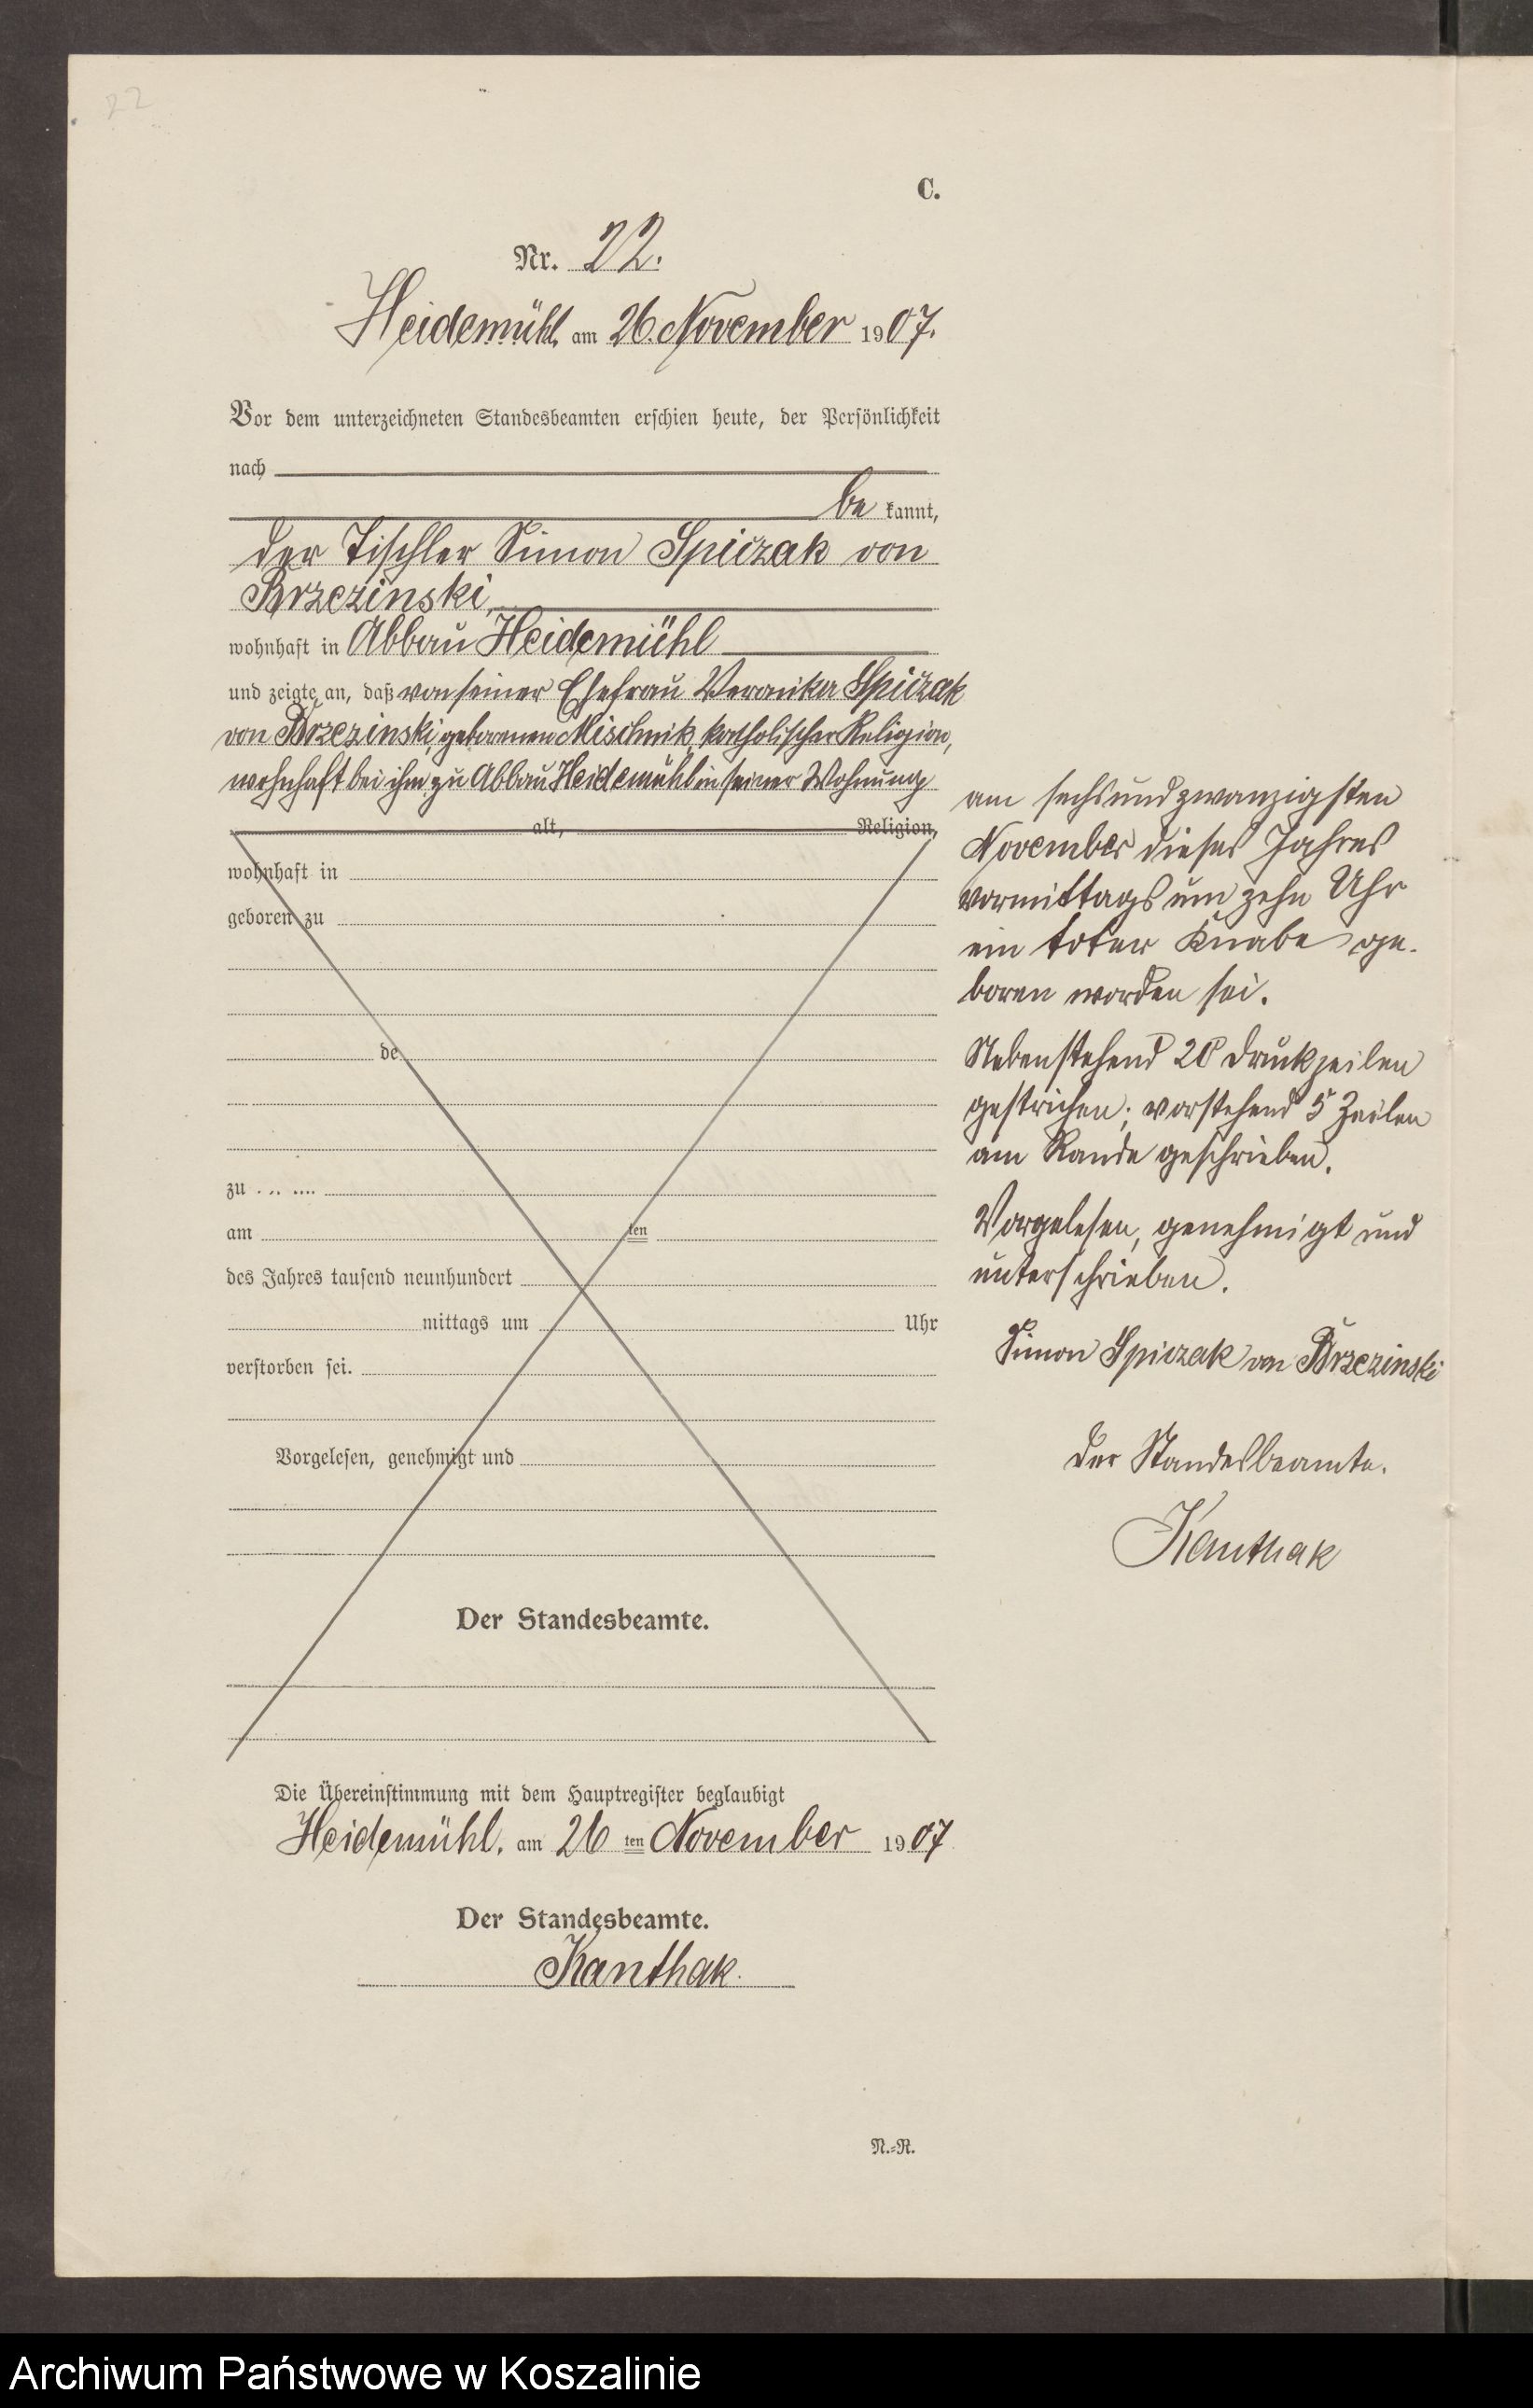 22
C.
Nr. 22.
Heidemühl, am 26. November 1907.
Vor dem unterzeichneten Standesbeamten erschien heute, der Persönlichkeit
nach
be kannt,
der Tischler Simon Spiczak von
Brzezinski,
wohnhaft in Abbau Heidemühl
und zeigte an, daß von seiner Ehefrau Veronika Spiczak
von Brzezinski, geborenen Mischnik, katholischer Religion,
wohnhaft bei ihm zu Abbau Heidemühl in seiner Wohnung
alt, Religion,
wohnhaft in
geboren zu
de
zu
am ten
des Jahres tausend neunhundert
mittags um Uhr
verstorben sei.
Vorgelesen, genehmigt und
Der Standesbeamte.
am sechsundzwanzigsten
November dieses Jahres
vormittags um zehn Uhr
ein toter Knabe ge-
boren worden sei.
Nebenstehend 20 Druckzeilen
gestrichen; vorstehend 5 Zeilen
am Rande geschrieben.
Vorgelesen, genehmigt und
unterschrieben.
Simon Spiczak von Brzezinski
Der Standesbeamte.
Kanthak
Die Übereinstimmung mit dem Hauptregister beglaubigt
Heidemühl, am 26 ten November 1907
Der Standesbeamte.
Kanthak.
N.-R.
Archiwum Państwowe w Koszalinie